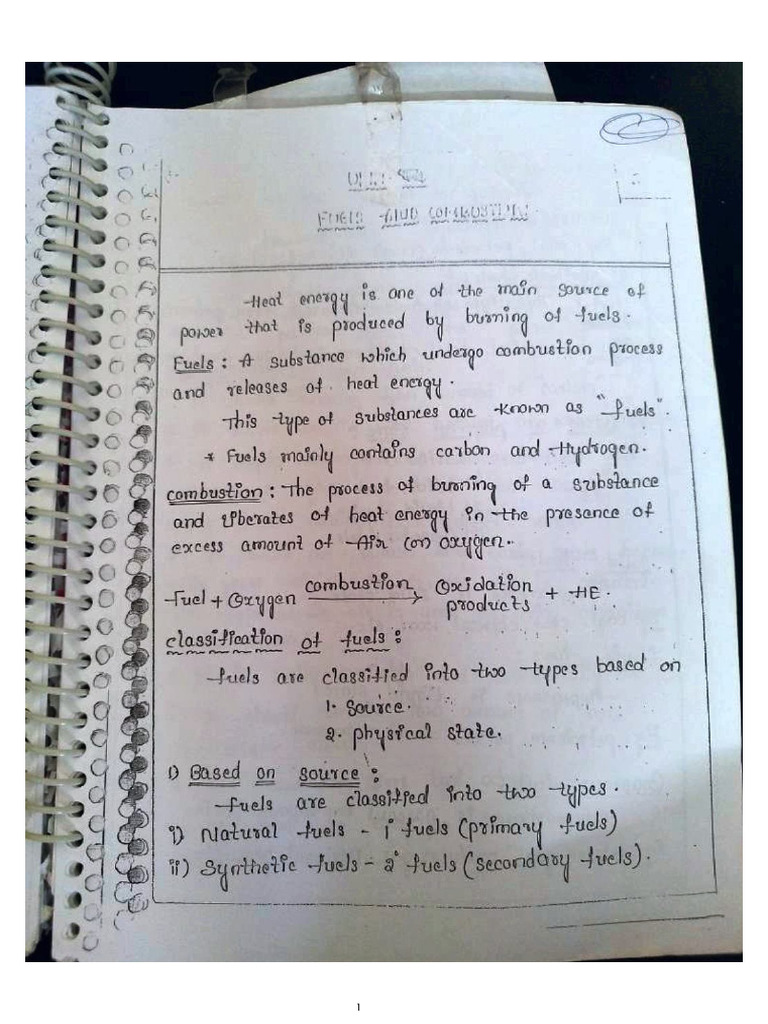 UNIT-
FUELS AND COMBUSTION
Heat energy is one of the main source of
power that is produced by burning of fuels.
Fuels : A substance which undergo combustion process
and releases of heat energy.
This type of substances are known as "fuels".
* Fuels mainly contains carbon and Hydrogen.
combustion : The process of burning of a substance
and liberates of heat energy in the presence of
excess amount of Air (or) oxygen.
Fuel + Oxygen combustion→ Oxidation products + HE.
classification of fuels :
fuels are classified into two types based on
1. source.
2. physical state.
1) Based on source :
fuels are classified into two types.
i) Natural fuels - 1° fuels (primary fuels)
ii) Synthetic fuels - 2° fuels (secondary fuels).
1